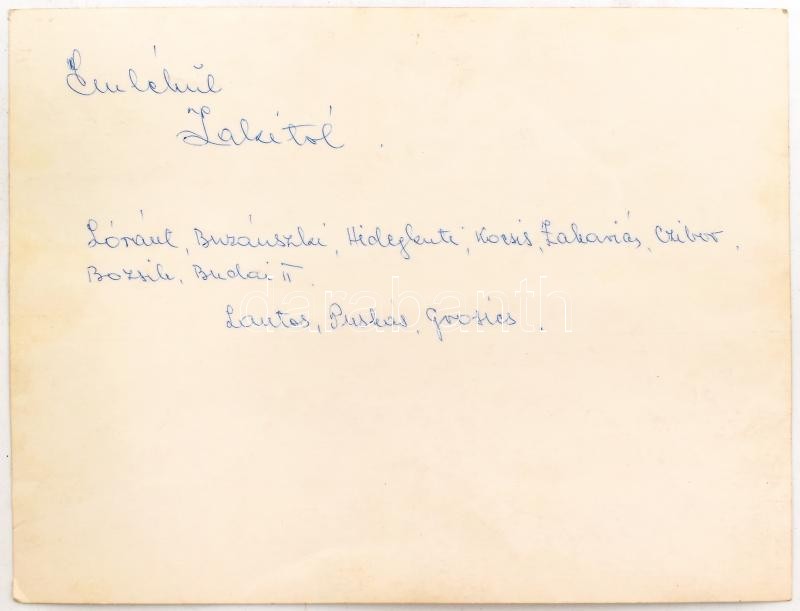 Emlékül
Zakitól.
Lóránt, Buzánszki, Hidegkuti, Kocsis, Zakariás, Czibor,
Bozsik, Budai II.
darabanth
Lantos, Puskás, Grosics.